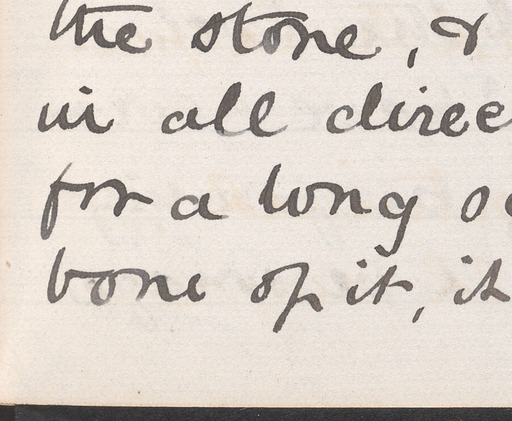 the stone, &
in all direc
for a long s
bone of it, it